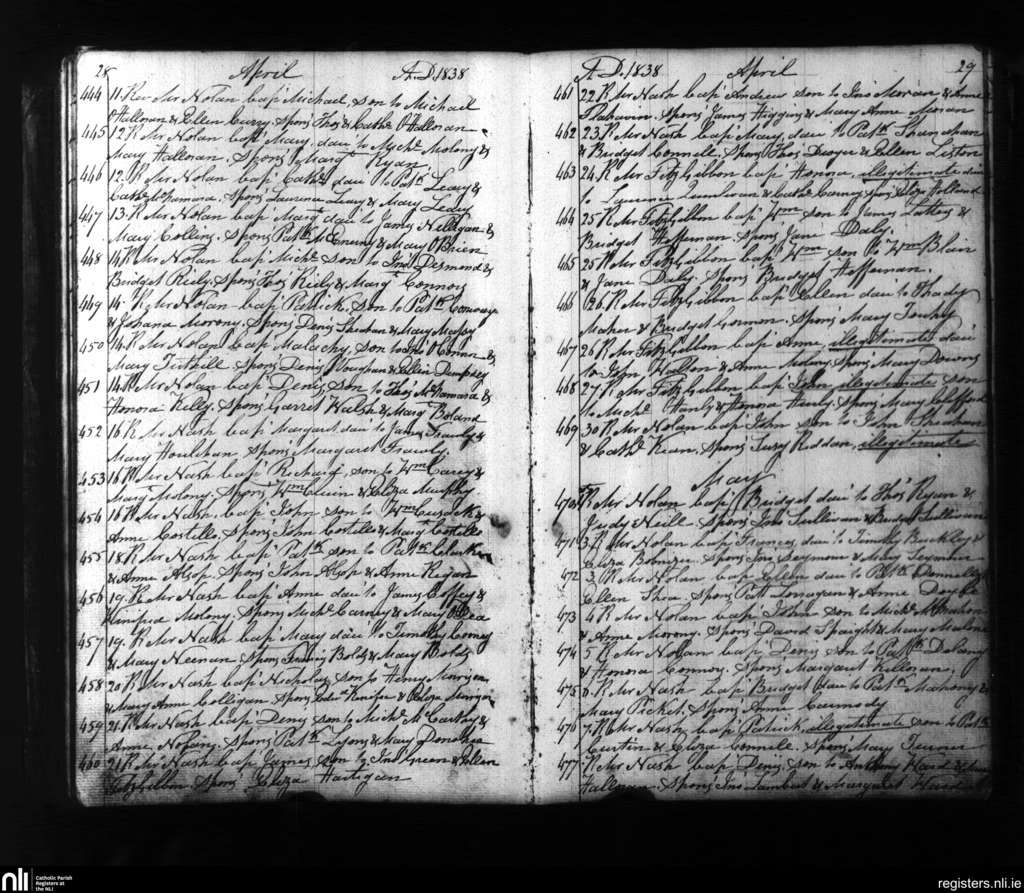 28 April A.D. 1838
444 11. Rev Mr Nolan bap Michael, son to Michael
O'Halloran & Ellen Curry. Spons Thos & Cathe O'Halloran
445 12. R Mr Nolan bap Mary, dau to Michl Molony &
Mary Halloran. Spons Margt Ryan
446 12. R Mr Nolan bap Cathe dau to Patk Leary &
Cathe McNamara. Spons Laurence Leary & Mary Leary
447 13. R Mr Nolan bap Marg dau to James Nelligan &
Mary Collins. Spons Patk McEnerny & Mary O'Brien
448 14. R Mr Nolan bap Michl son to Jno Desmond &
Bridget Riely. Spons Thos Riely & Margt Connors
449 14. R Mr Nolan bap Patrick, son to Patk Conway
& Johana Morony. Spons Denis Sheehan & Mary
450 14. R Mr Nolan bap Malachy, son to O'Connor &
Mary Tuthill. Spons Denis Vaughan & Ellen Dempsey
451 14. R Mr Nolan bap Denis, son to Thos McNamara &
Honora Kelly. Spons Garret Walsh & Marg Boland
452 16 R Mr Nash bap Margaret dau to James Frawly &
Mary Houlihan. Spons Margaret Frawly.
453 16 R Mr Nash bap Richard, son to Wm Carey &
Marg Molony. Spons Wm & Eliza Murphy
454 16 R Mr Nash. bap John son to Wm Cusack &
Anne Costello. Spons John Costello & Margt Costello
455 18 R Mr Nash bap Patk son to Patk
& Anne Alsop. Spons John Alsop & Anne Regan
456 19. R Mr Nash bap Anne dau to James Coffey &
Winifred Molony. Spons Michl Carney & Mary O'Dea
457 19. R Mr Nash bap Mary dau to Timothy Cooney
& Mary Neenan Spons Francis & Mary
458 20 R Mr Nash bap Nicholas, son to Henry
& Mary Anne Colligan Spons & Eliza
459 21. R Mr Nash bap Denis son to Michl McCarthy &
Anne Spons Patk Lyons & Mary Donohue
460 21 R Mr Nash bap James son to Jno Green & Ellen
FitzGibbon. Spons Eliza Hartigan
A.D. 1838 April 29
461 22. R Mr Nash bap Andrew son to Jno Moran & Anne
Flahavin. Spons James Higgins & Mary Anne Moran
462 23. R Mr Nash bap Mary, dau to Patk Shanahan
& Bridget Connell. Spons Thos Dwyer & Ellen Liston
463 24. R Mr FitzGibbon bap Honora, illegitimate dau
to Laurence Quinlivan & Cathe Spons Holland
464 25 R Mr FitzGibbon bap Wm son to James &
Bridget Heffernan Spons Jane Daly.
465 25 R Mr FitzGibbon bap Wm son to Wm Blair
& Jane Daly Spons Bridget Heffernan.
466 26. R Mr FitzGibbon bap Ellen dau to Thady
Maher & Bridget Gorman. Spons Mary
467 26 R Mr FitzGibbon bap Anne, illegitimate dau
to John & Anne Molony Spons Mary Downs
468 27. R Mr FitzGibbon bap John, illegitimate son
to Michl Hanly & Honora Hanly. Spons Mary Clifford
469 30 R Mr Nolan bap John son to John Sheehan
& Cathe Spons Susy Riddan, illegitimate
May
470 1st R Mr Nolan bap Bridget dau to Thos Ryan &
Judy Neill. Spons Jno Sullivan & Bridget Sullivan
471 3. R Mr Nolan bap Frances dau to Timothy Buckley &
Eliza Spons Jno Seymour & Mary Seymour
472 3. R Mr Nolan bap Ellen dau to Patk Donnelly &
Ellen Shea. Spons Patt & Anne Doyle
473 4 R Mr Nolan bap John son to Michl McMahon
& Anne Morony. Spons David Speight & Mary Malone
474 5 R Mr Nolan bap Denis son to Patk Delany
& Honora Connory. Spons Margaret Killoran
475 6. R Mr Nash bap Bridget dau to Patk Mahony &
Mary Picket. Spons Anne Carmody
476 7. R Mr Nash bap Patrick, illegitimate son to Patk
Curtin & Eliza Connell. Spons Mary
477 R Mr Nash bap Denis, son to Anthony Hard &
Halloran. Spons Jno Lambert & Margaret
nli Catholic Parish
Registers at
the NLI
registers.nli.ie